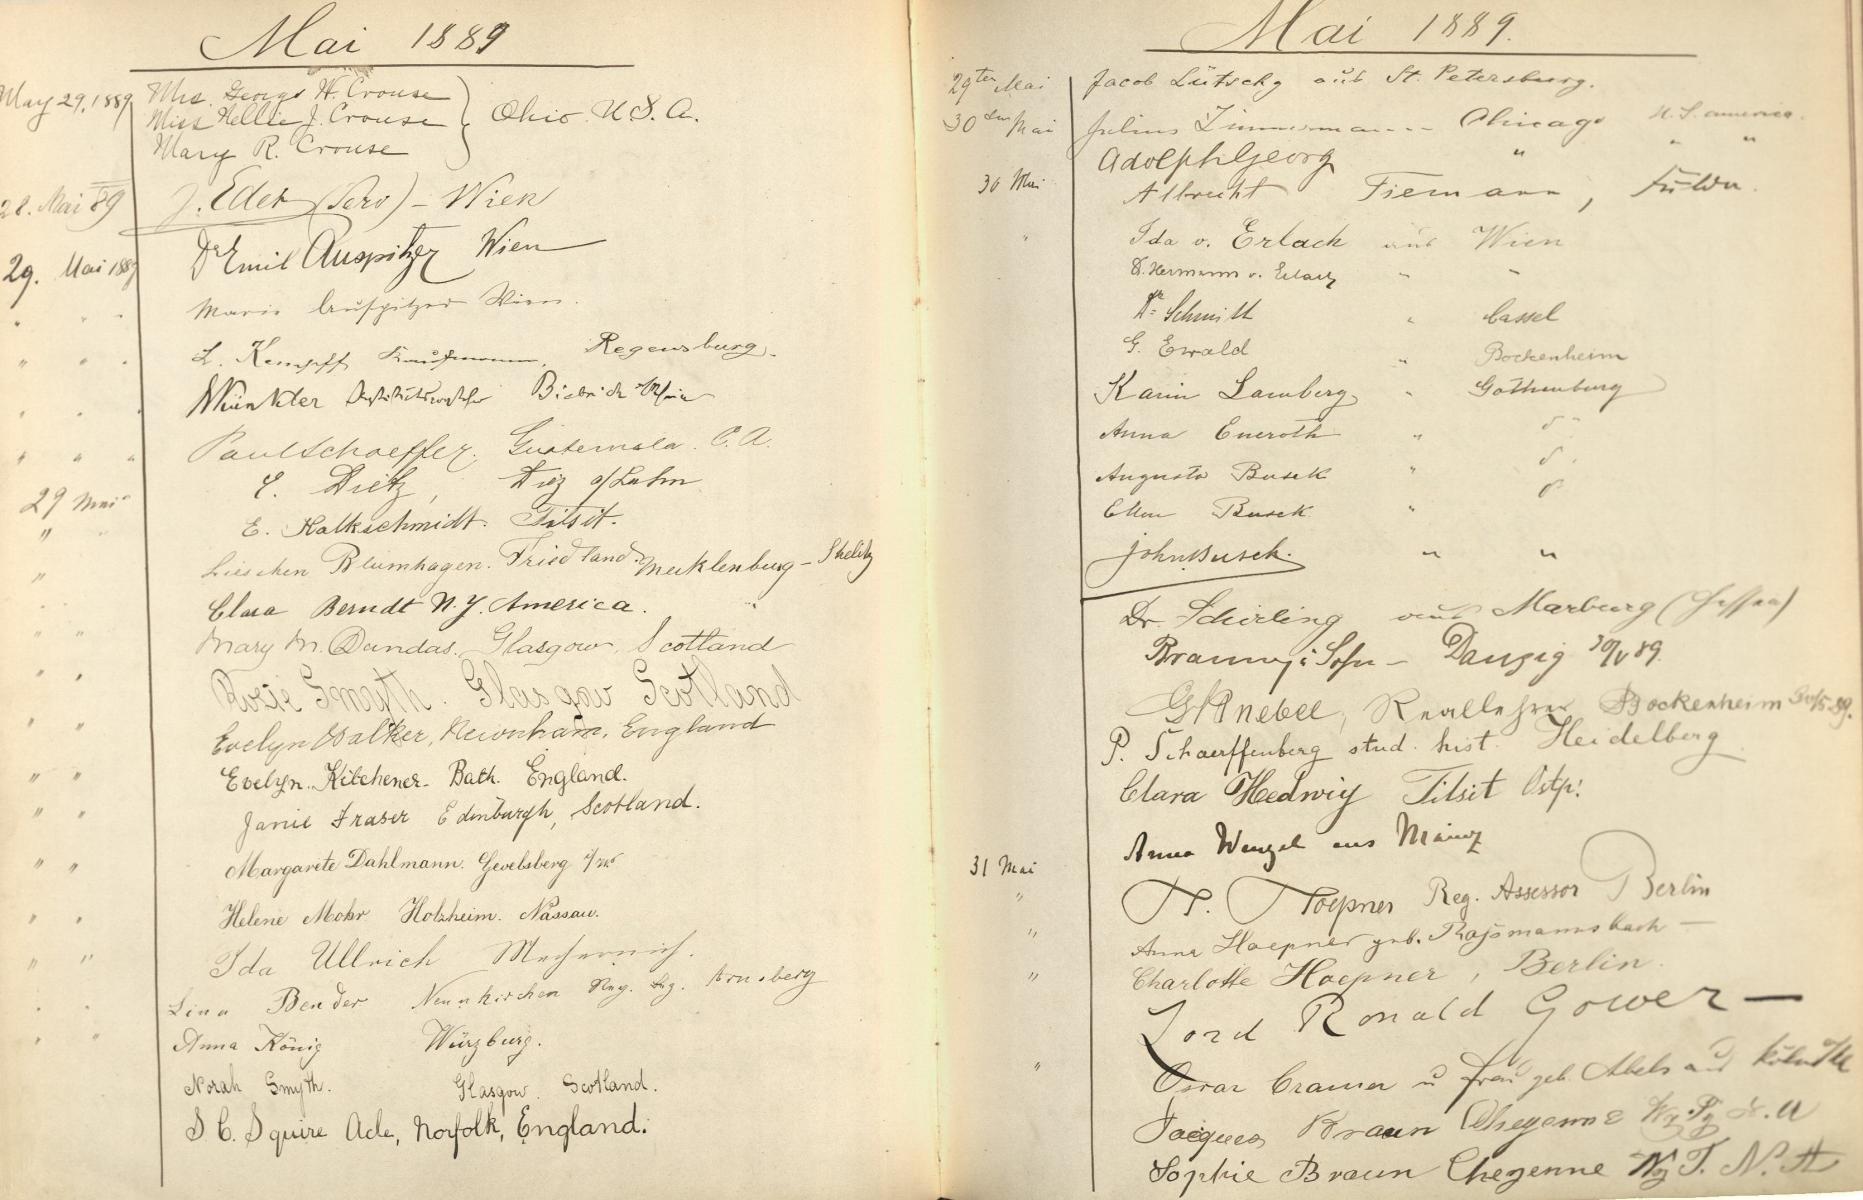 Mai 1889
May 29, 1889 Mrs. George W. Crouse
Miss Nellie J. Crouse Ohio U.S.A.
Mary R. Crouse
28. Mai 89 J. Eder - Wien
29. Mai 1889 Dr Emil Auspitzer Wien
" " " Marie Auspitzer Wien.
" " " L. Kempff Kaufmann, Regensburg.
" " " Münster Biebrich
" " " Paul Schaeffer. Guatemala. C. A.
29 Mai Dietz, Diez a/Lahn
" E. Kalkschmidt. Tilsit.
" Lieschen Blumhagen. Friedland. Mecklenburg-Strelitz
Clara Berndt N.Y. America.
" " Mary M. Dundas. Glasgow. Scotland
" " Rosie Smyth. Glasgow Scotland
" " Evelyn Walker, Newnham, England
" " Evelyn Kitchener. Bath. England.
" " Janie Fraser Edinburgh, Scotland.
" " Margarete Dahlmann. Gevelsberg
" " Helene Mohr Holzheim. Nassau.
" " Ida Ullrich Mechernich.
" " Lina Bender Neunkirchen Reg. Bez. Arnsberg
" " Anna König Würzburg.
Norah Smyth. Glasgow. Scotland.
S C. Squire Acle, Norfolk, England.
Mai 1889.
29ten Mai Jacob Lütschg aus St. Petersburg.
30 Mai Julius Zimmermann Chicago U.S. america.
Adolph Georg " " "
30 Mai Albrecht Tiemann, Fulda.
" Ida v. Erlach aus Wien
Hermann v. Erlach " "
Dr Schmitt " Cassel
G. Ewald " Bockenheim
Karin Lamberg " Gothenburg
Anna Eneroth "
Augusta Busck "
Ellen Busck "
John Busck. " "
Dr. Schirling aus Marburg (Hessen)
Sohn - Danzig 30/V 89.
Knebel, Reallehrer Bockenheim 30/5.89.
P. Schaerffenberg stud. hist. Heidelberg
Clara Hedwig Tilsit Ostp:
Anna Wenzel aus Mainz
31 Mai Hoepner Reg. Assessor Berlin
" Anna Hoepner geb.
" Charlotte Hoepner, Berlin.
" Lord Ronald Gower —
" Oscar Cramer u Frau geb. Abels aus Köln
Jacques Braun Cheyenne Wy. Ty
Sophie Braun Cheyenne Wy T. N. A